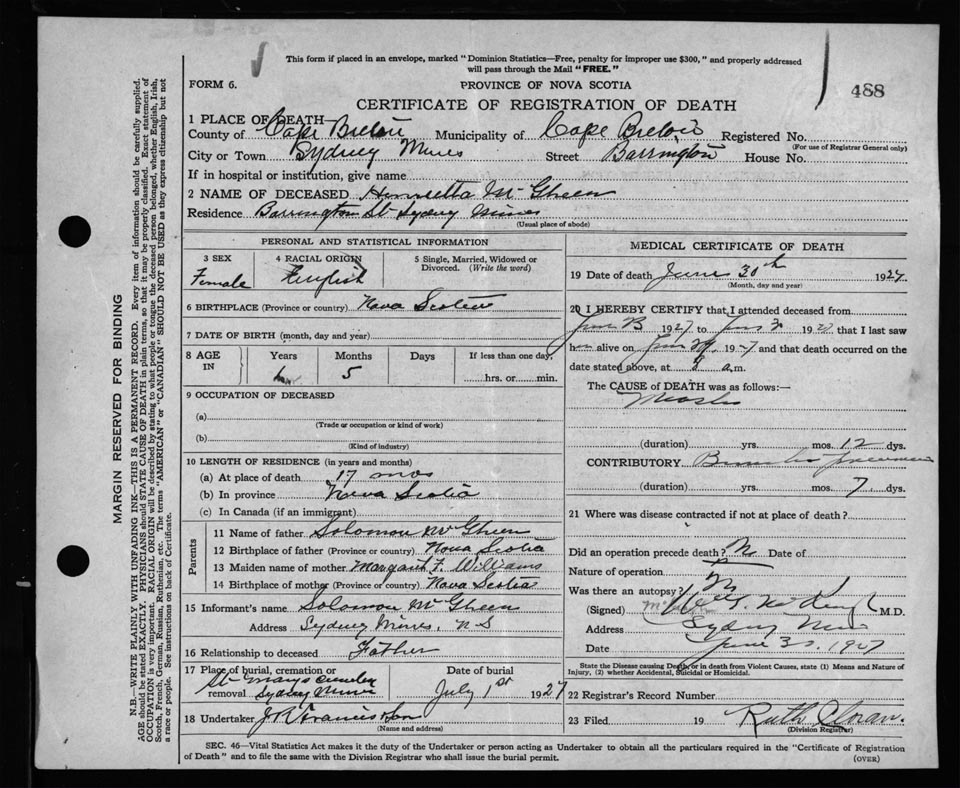 This form if placed in an envelope, marked "Dominion Statistics—Free, penalty for improper use $300," and properly addressed
will pass through the Mail "FREE."
FORM 6.
PROVINCE OF NOVA SCOTIA
488
CERTIFICATE OF REGISTRATION OF DEATH
1 PLACE OF DEATH
County of Cape Breton Municipality of Cape Breton Registered No.
(For use of Registrar General only)
City or Town Sydney Mines Street Barrington House No.
If in hospital or institution, give name
2 NAME OF DECEASED Henrietta McGheen
Residence Barrington St Sydney Mines
(Usual place of abode)
MARGIN RESERVED FOR BINDING
N.B.—WRITE PLAINLY WITH UNFADING INK—THIS IS A PERMANENT RECORD. Every item of information should be carefully supplied.
AGE should be stated EXACTLY. PHYSICIANS should STATE CAUSE OF DEATH in plain terms, so that it may be properly classified. Exact statement of
OCCUPATION is very important. RACIAL ORIGIN will be described by stating to what people or tongue the deceased person belonged, whether English, Irish,
Scotch, French, German, Russian, Ruthenian, etc. The terms "AMERICAN" or "CANADIAN" SHOULD NOT BE USED as they express citizenship but not
a race or people. See instructions on back of Certificate.
PERSONAL AND STATISTICAL INFORMATION
3 SEX
Female
4 RACIAL ORIGIN
English
5 Single, Married, Widowed or
Divorced. (Write the word)
6 BIRTHPLACE (Province or country) Nova Scotia
7 DATE OF BIRTH (month, day and year)
8 AGE
IN
Years
Months
5
Days
If less than one day.
hrs. or min.
9 OCCUPATION OF DECEASED
(a)
(Trade or occupation or kind of work)
(b)
(Kind of industry)
10 LENGTH OF RESIDENCE (in years and months)
(a) At place of death 17 mos
(b) In province Nova Scotia
(c) In Canada (if an immigrant)
Parents
11 Name of father Solomon McGheen
12 Birthplace of father (Province or country) Nova Scotia
13 Maiden name of mother Margaret F. Williams
14 Birthplace of mother (Province or country) Nova Scotia
15 Informant's name Solomon McGheen
Address Sydney Mines, N S
16 Relationship to deceased Father
17 Place of burial, cremation or
removal St Marys
Sydney Mines
Date of burial
July 1st 1927
18 Undertaker J R Francis & Son
(Name and address)
MEDICAL CERTIFICATE OF DEATH
19 Date of death June 30th 1927
(Month, day and year)
20 I HEREBY CERTIFY that I attended deceased from
June 1927 to 1927, that I last saw
her alive on June 29, 1927 and that death occurred on the
date stated above, at a.m.
The CAUSE of DEATH was as follows:—
Measles
(duration) yrs. mos. 12 dys.
CONTRIBUTORY Broncho pneumonia
(duration) yrs. mos. 7 dys.
21 Where was disease contracted if not at place of death?
Did an operation precede death? No Date of
Nature of operation
Was there an autopsy? No
(Signed) M.D.
Address Sydney Mines
Date June 30 1927
State the Disease causing Death, or in death from Violent Causes, state (1) Means and Nature of
Injury, (2) whether Accidental, Suicidal or Homicidal.
22 Registrar's Record Number
23 Filed 19 Ruth Cloran.
(Division Registrar)
SEC. 46—Vital Statistics Act makes it the duty of the Undertaker or person acting as Undertaker to obtain all the particulars required in the "Certificate of Registration
of Death" and to file the same with the Division Registrar who shall issue the burial permit.
(OVER)